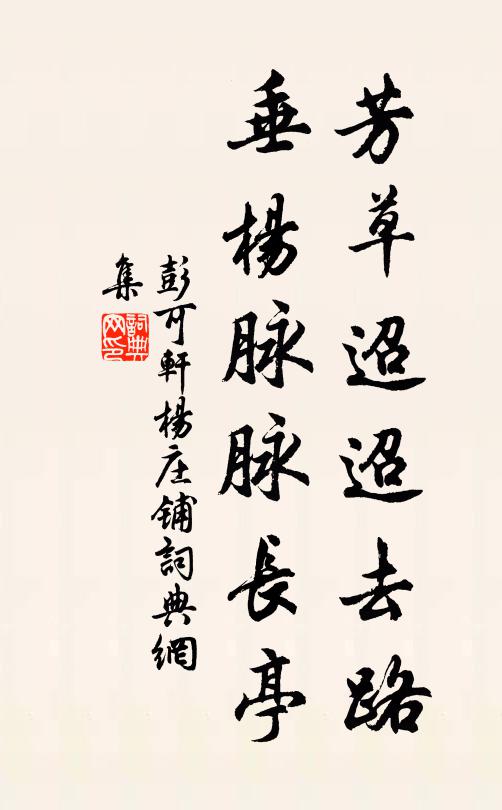 芳草迢迢去路
垂楊脉脉長亭
彭可軒楊庄鋪詞典網
集
詞典
网印